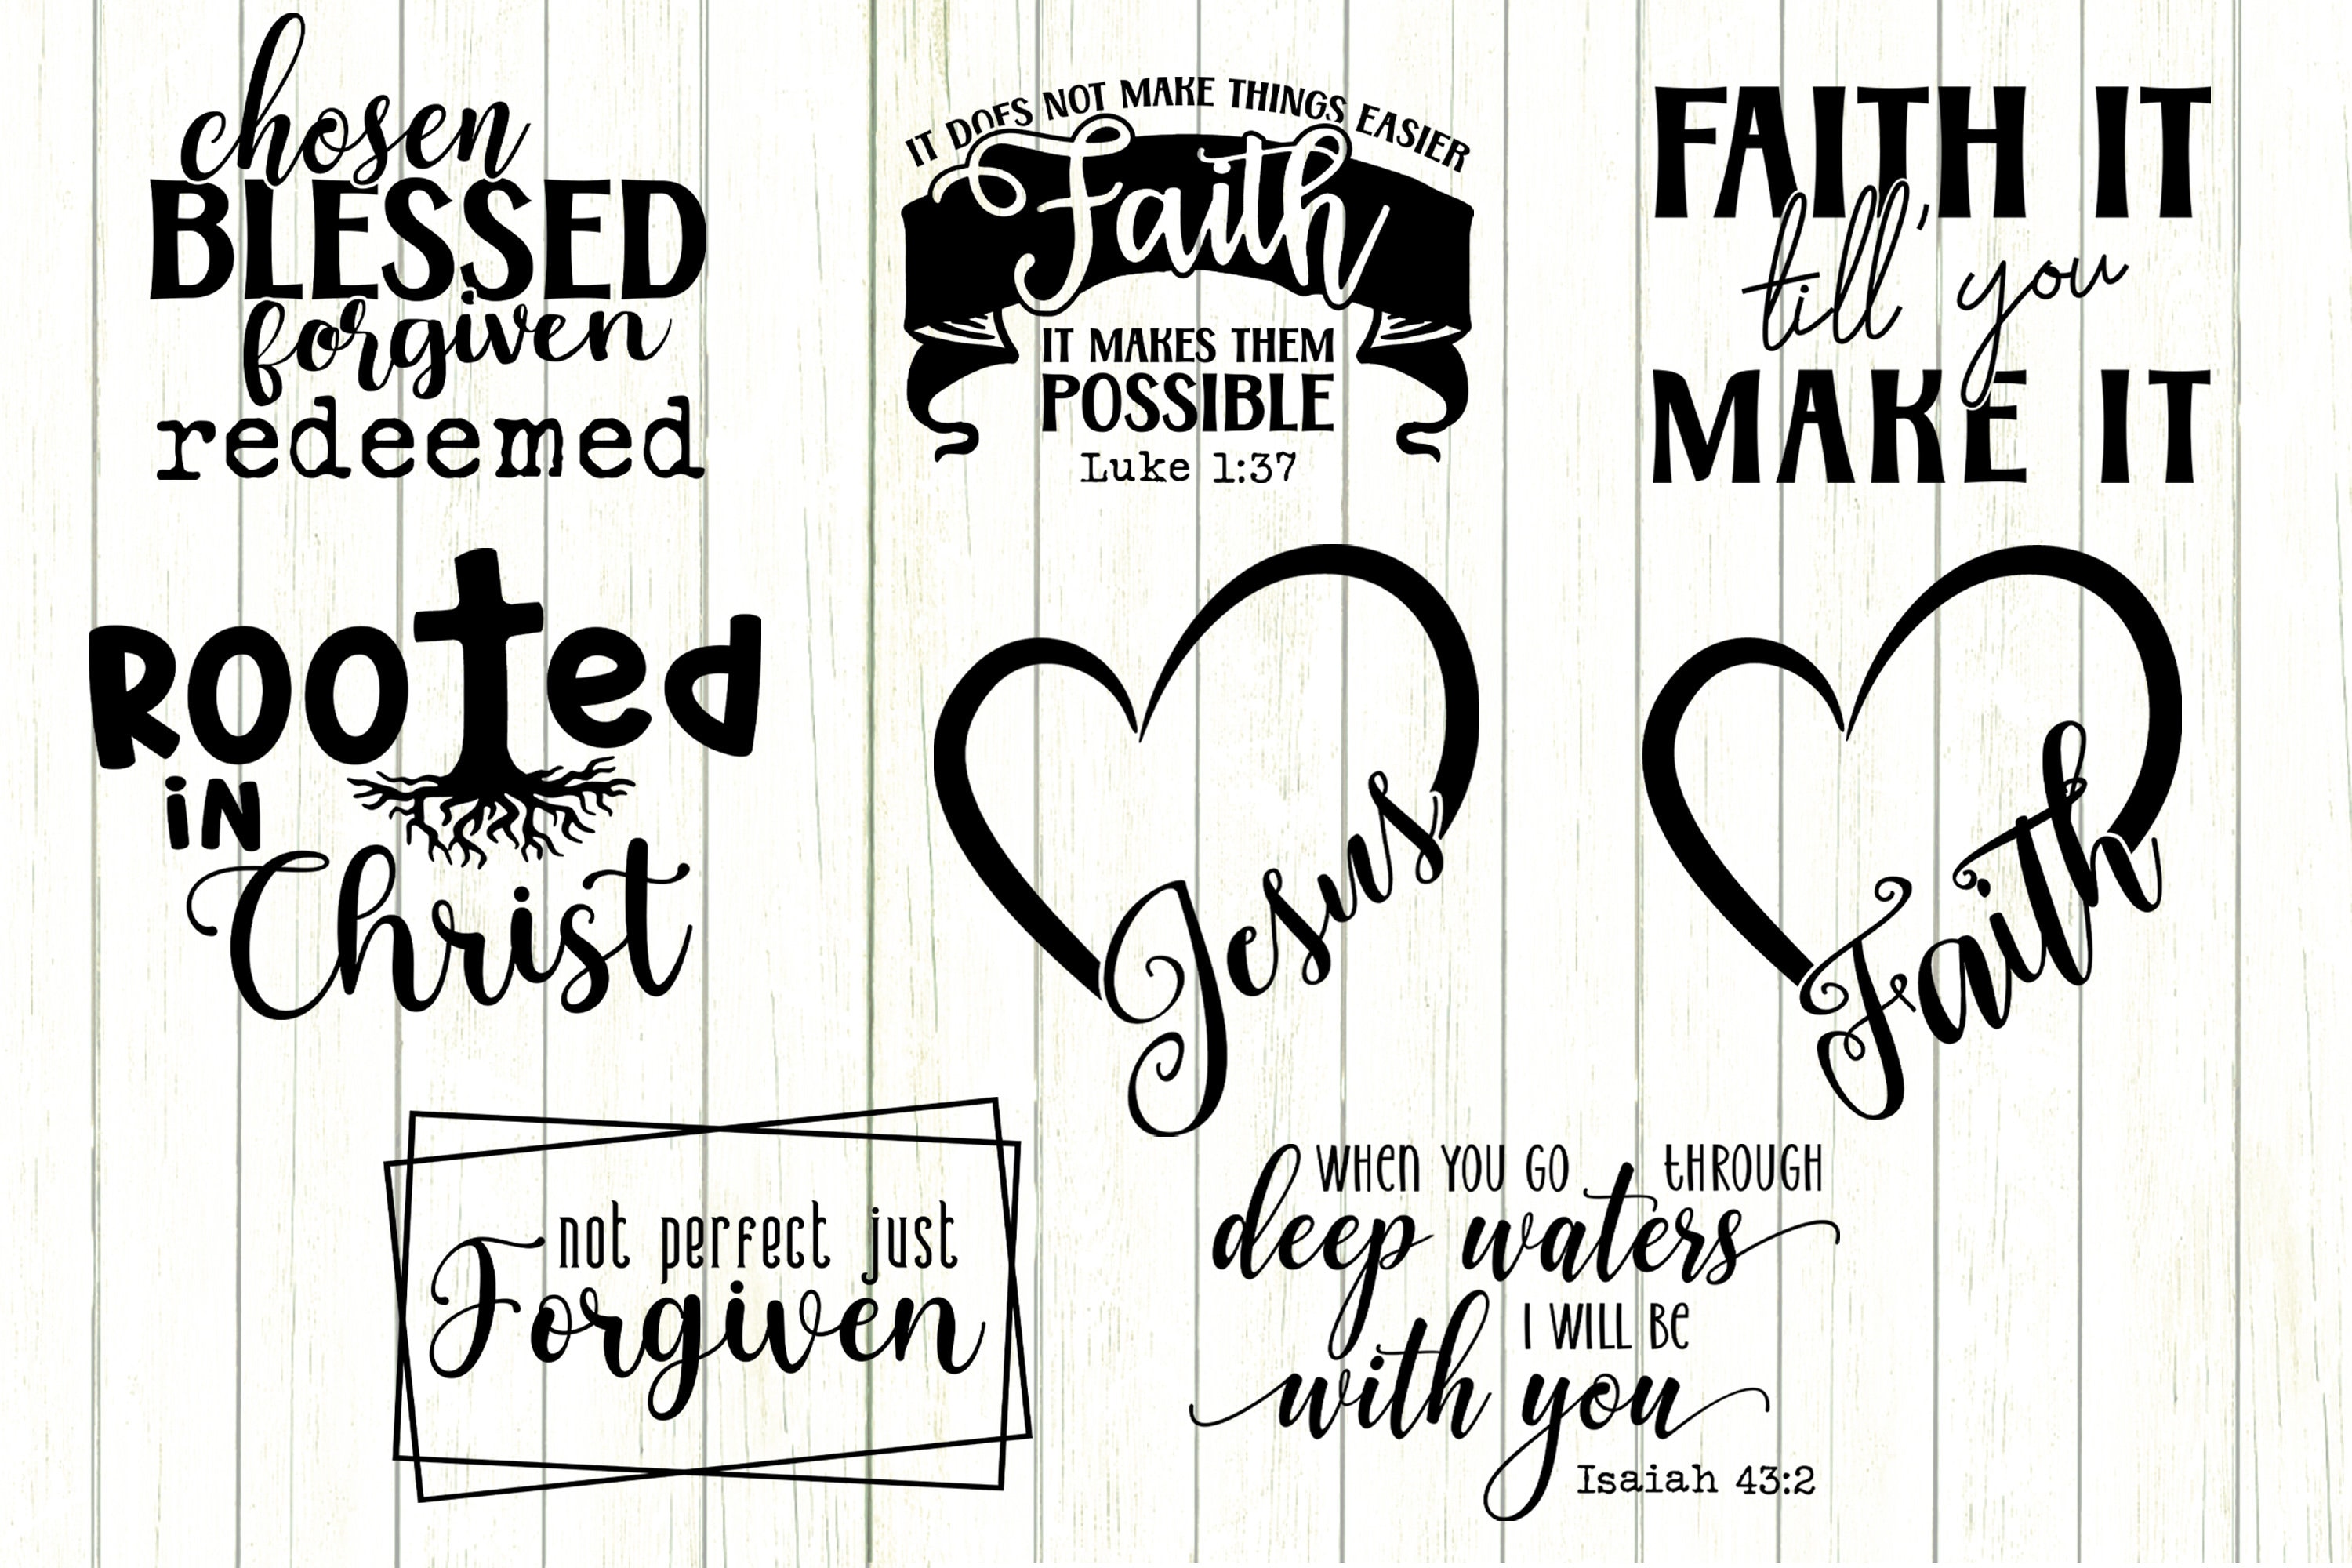 chosen
BLESSED
forgiven
redeemed
IT DOES NOT MAKE THINGS EASIER
Faith
IT MAKES THEM
POSSIBLE
Luke 1:37
FAITH IT
till' you
MAKE IT
ROOted
iN
Christ
Jesus
Faith
not perfect just
Forgiven
WHen YOU GO tHROUGH
deep waters
I WILL Be
with you
Isaiah 43:2